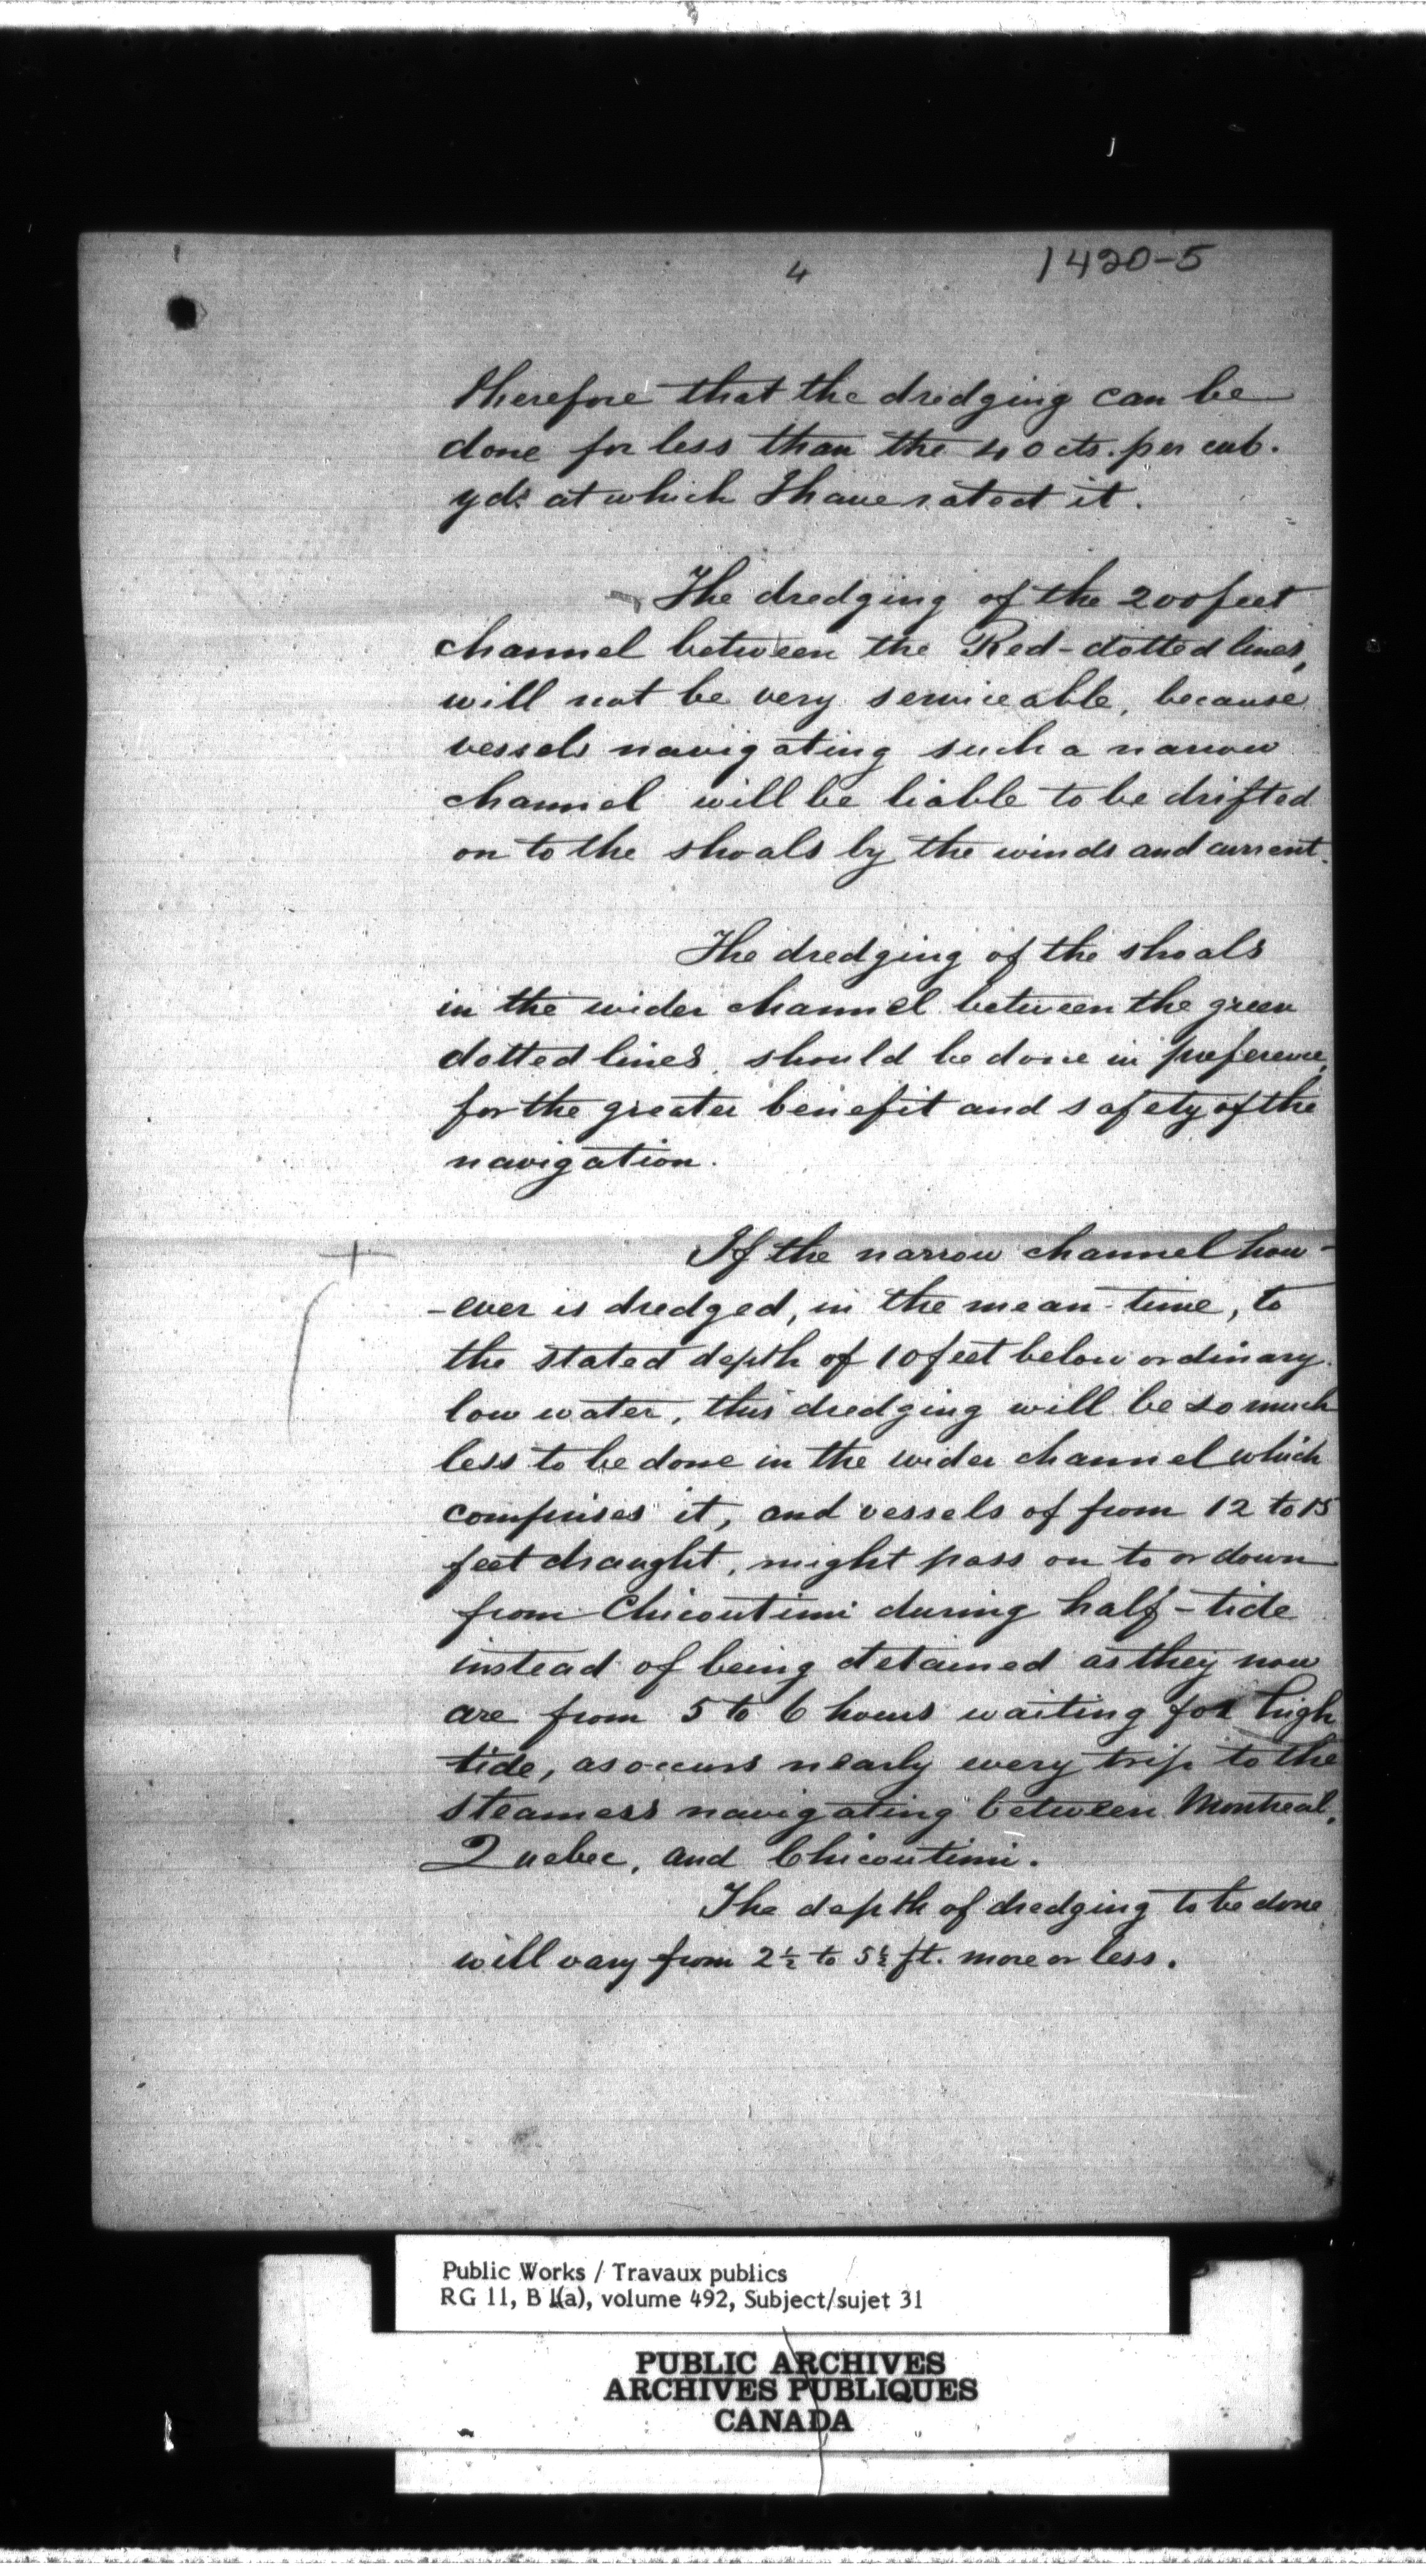 4
1420-5
therefore that the dredging can be
done for less than the 40 cts. per cub.
yd: at which I have rated it.
The dredging of the 200 feet
channel between the Red-dotted lines,
will not be very serviceable, because
vessels navigating such a narrow
channel will be liable to be drifted
on to the shoals by the winds and current.
The dredging of the shoals
in the wider channel between the green
dotted lines, should be done in preference,
for the greater benefit and safety of the
navigation.
If the narrow channel how-
-ever is dredged, in the mean-time, to
the stated depth of 10 feet below ordinary
low water, this dredging will be so much
less to be done in the wider channel which
comprises it, and vessels of from 12 to 15
feet draught, might pass on to or down
from Chicoutimi during half-tide
instead of being detained as they now
are from 5 to 6 hours waiting for high
tide, as occurs nearly every trip to the
steamers navigating between Montreal,
Quebec, and Chicoutimi.
The depth of dredging to be done
will vary from 2½ to 5½ ft. more or less.
Public Works / Travaux publics
RG 11, B 1(a), volume 492, Subject/sujet 31
PUBLIC ARCHIVES
ARCHIVES PUBLIQUES
CANADA